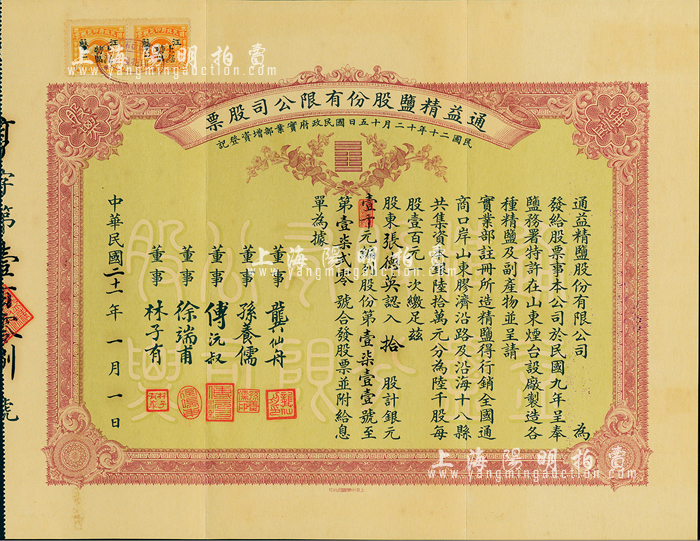 通益精鹽股份有限公司股票
民國二十年十二月十五日國民政府實業部增資登記
通益精鹽股份有限公司 為
發給股票事本公司於民國九年呈奉
鹽務署特許在山東煙台設廠製造各
種精鹽及副產物並呈請
實業部註冊所造精鹽得行銷全國通
商口岸山東膠濟沿路及沿海十八縣
共集資本銀陸拾萬元分為陸千股每
股壹百元一次繳足茲
股東張德英認入 拾 股計銀元
壹千元 股份第壹柒壹壹號至
第壹柒貳零 號合發股票並附給息
單為據
董事 龔仙舟
董事 孫養儒
董事 傅沅叔
董事 徐端甫
董事 林子有
中華民國二十一年 一月 一日
上海陽明拍賣
www.yangmingauction.com
上海陽明拍賣
www.yangmingauction.com
上海陽明拍賣
www.yangmingauction.com